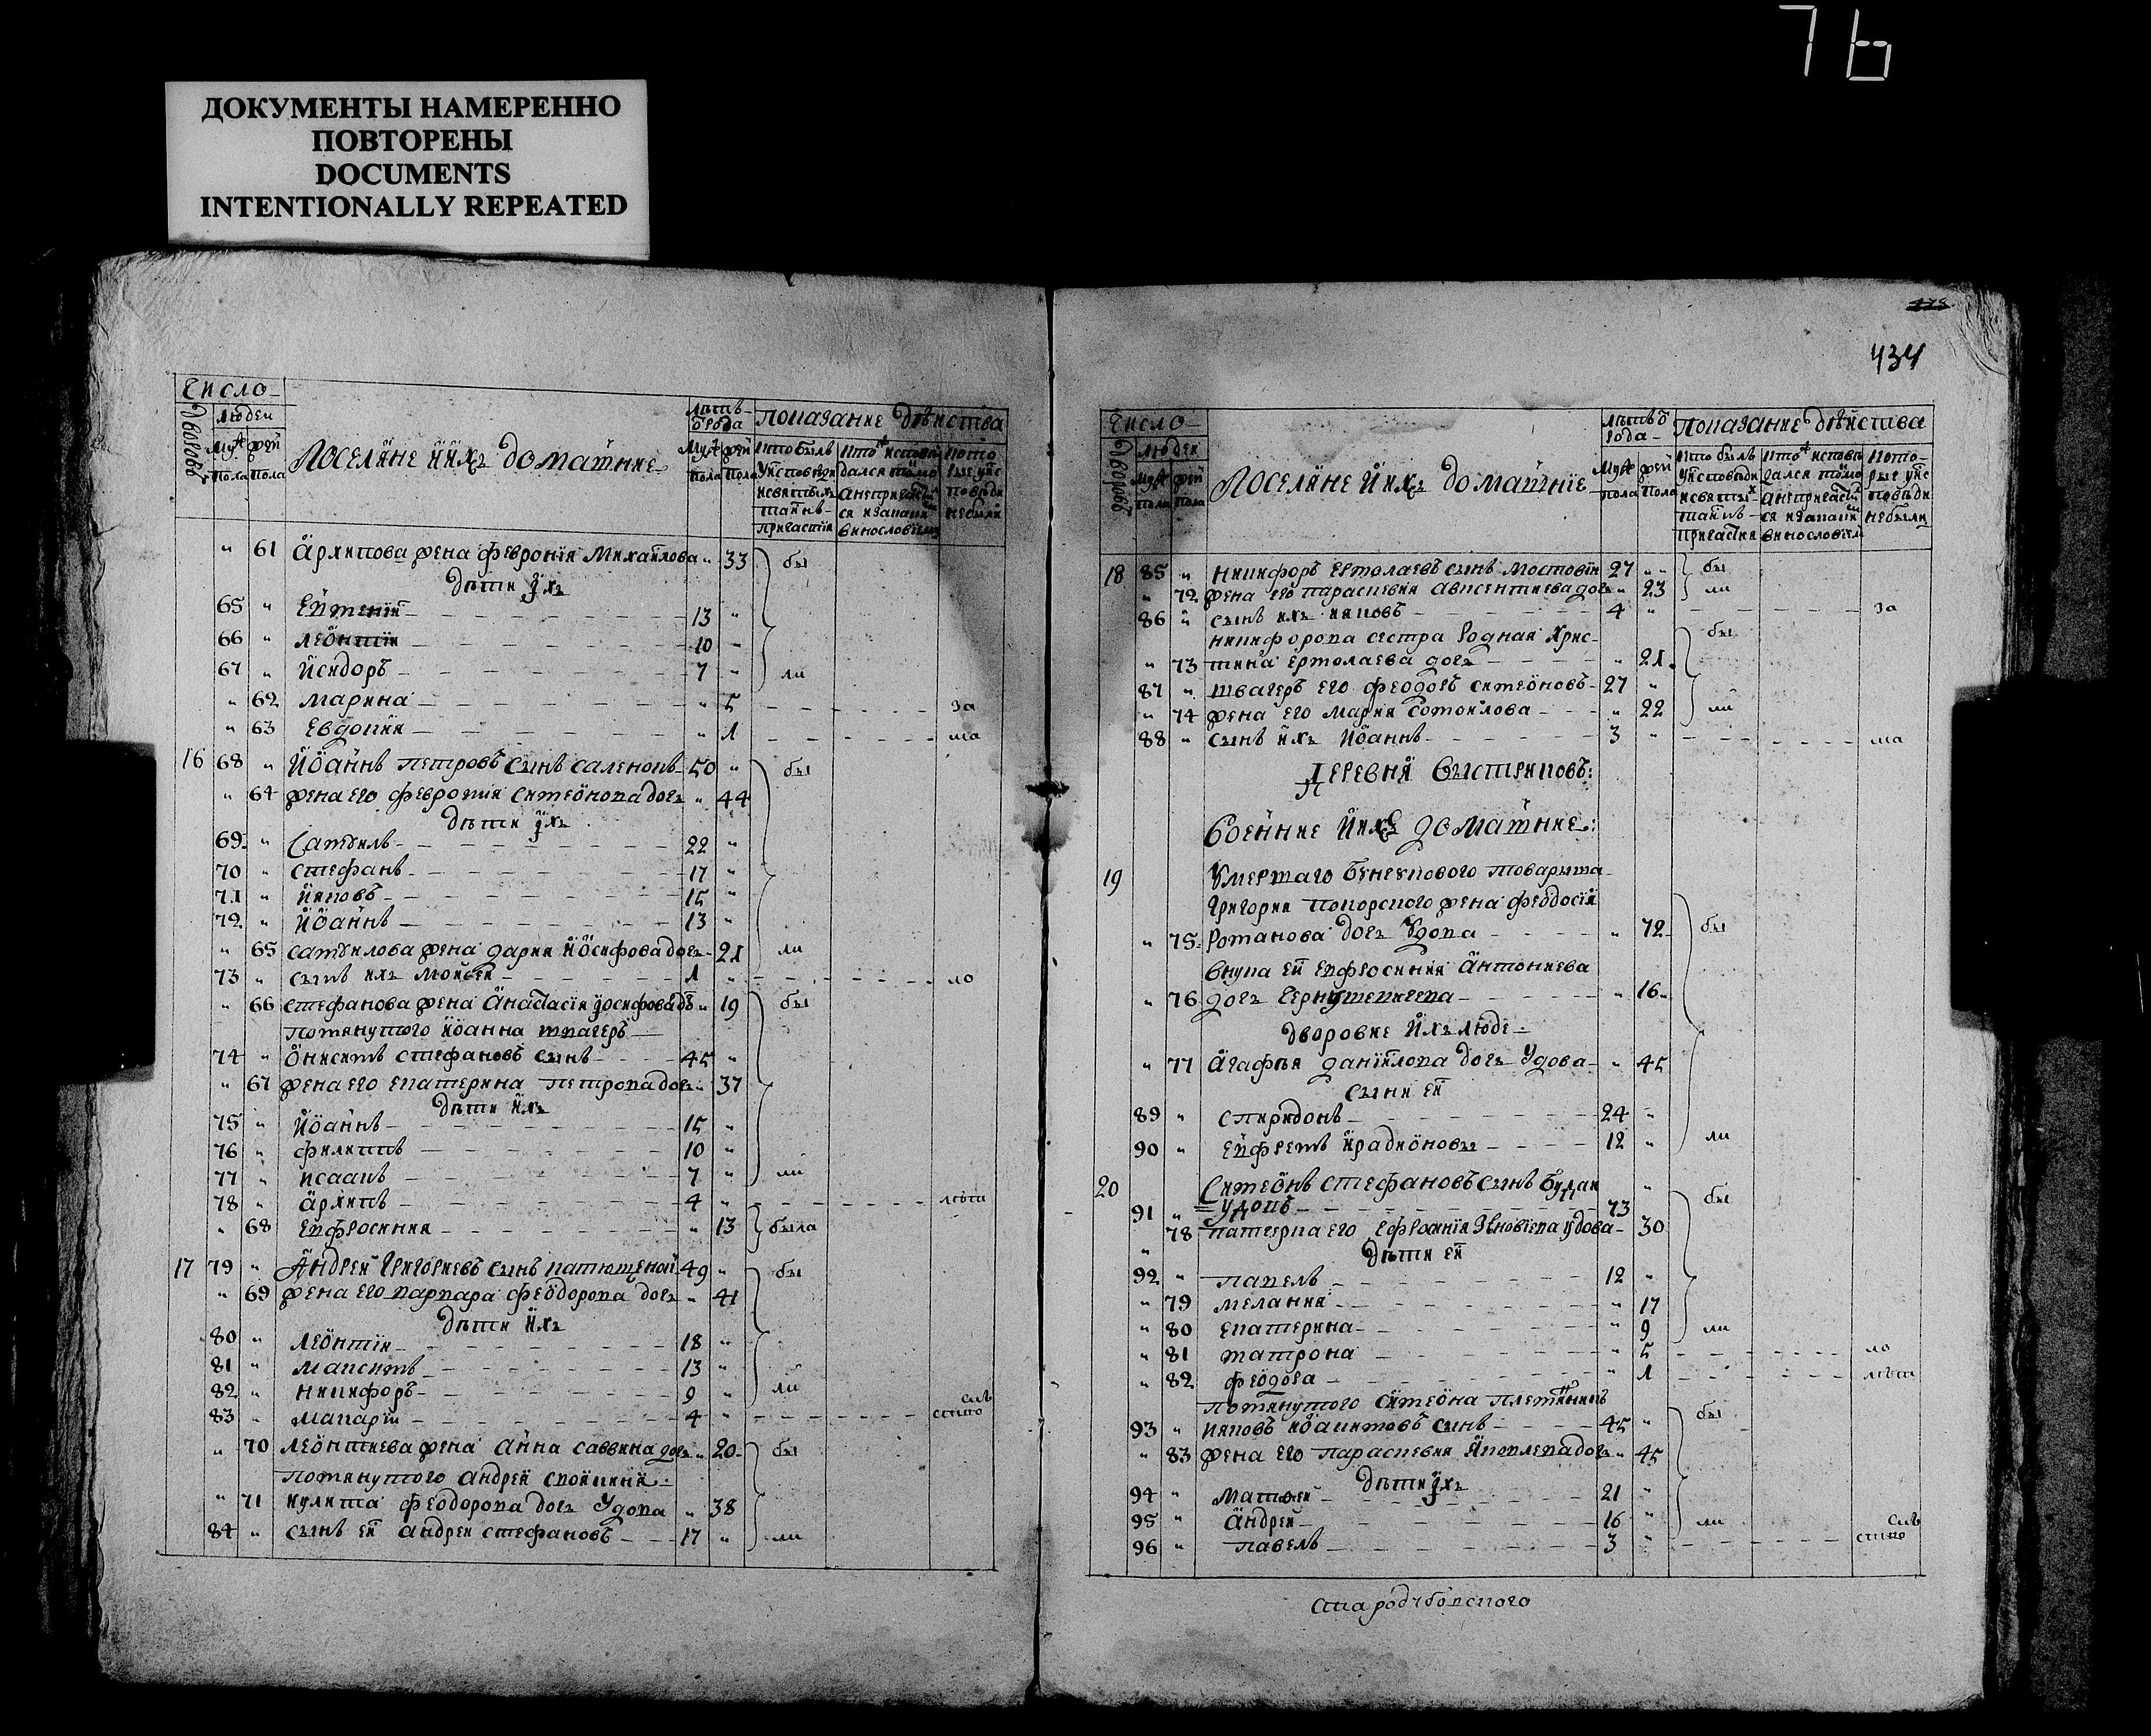 76
ДОКУМЕНТЫ НАМЕРЕННО
ПОВТОРЕНЫ
DOCUMENTS
INTENTIONALLY REPEATED
Число
Дворовъ
людеи
Муж пола
жен пола
Поселяне и ихъ домашние
лѣтъ ѿ рода
Муж пола
жен пола
показание дѣиства
кто былъ у исповѣди и святыхъ таинъ причастия
кто исповидался токмо а не причастился и за каким винословием
кото рые у исповѣди не были
" 61 Архипова жена Феврония Михаилова " 33 бы
Дѣти ихъ
65 " Евтении 13 "
66 " Леонтии 10 "
67 " Исидоръ 7 " ли
" 62 Марина " 5 за
" 63 Евдокия " 1 ма
16 68 " Иоаннъ Петровъ сынъ Саленокъ 50 " бы
" 64 жена его Феврония Симеонова дочь " 44
Дѣти ихъ
69 " Самоилъ 22 "
70 " Стефанъ 17 "
71 " Иаковъ 15 "
72 " Иоаннъ 13 "
" 65 Самоилова жена Дария Иосифова дочь " 21 ли
73 " сынъ ихъ Моисеи 1 " ло
" 66 Стефанова жена Анастасия Иосифова дочь " 19 бы
Помянутого Иоанна швагеръ
74 " Онисимъ Стефановъ сынъ 45 "
" 67 жена его Екатерина Петрова дочь " 37
Дѣти ихъ
75 " Иоаннъ 15 "
76 " Филиппъ 10 "
77 " Исаакъ 7 " ли
78 " Архипъ 4 " лѣти
" 68 Евфросиния " 13 была
17 79 " Андреи Григориевъ сынъ 49 " бы
" 69 жена его Варвара Феодорова дочь " 41
Дѣти ихъ
80 " Леонтии 18 "
81 " Максимъ 13 "
82 " Никифоръ 9 " ли
83 " Макарии 4 "
" 70 Леонтиева жена Анна Саввина дочь " 20 бы
Помянутого Андрея своячиня
" 71 Иулита Феодорова дочь Удова " 38
84 " сынъ ея Андреи Стефановъ 17 " ли
434
Число
Дворовъ
людеи
Муж пола
жен пола
Поселяне и ихъ домашние
лѣтъ ѿ рода
Муж пола
жен пола
показание дѣиства
кто былъ у исповѣди и святых таинъ причастия
кто исповидался токмо а не причастился и за каким винословием
кото рые у исповѣди не были
18 85 " Никифоръ Ермолаевъ сынъ 27 " бы
" 72 жена его Параскевия Авксентиева дочь " 23 ли
86 " сынъ ихъ Иаковъ 4 " за
Никифорова сестра родная Хрис-
" 73 тина Ермолаева дочь " 21 бы
87 " швагеръ его Феодоръ Симеоновъ 27 "
" 74 жена его Мария Самоилова " 22 ли
88 " сынъ ихъ Иоаннъ 3 " ма
Деревня Быстриковъ:
Военние и ихъ домашние:
19 Умершаго бунчукового товарыша
Григория Покорского жена Феодосия
" 75 Романова дочь Удова " 72 бы
внука ея Евфросиния Антониева
" 76 дочь " 16
Дворовие ихъ люде
" 77 Агафия Даниилова дочь Удова " 45
сыни ея
89 " Спиридонъ 24 "
90 " Ефремъ Ирадионовы 12 " ли
20 Симеонъ Стефановъ сынъ
91 " Удовъ 73 " бы
" 78 его Ефросиния Зиновиева удова " 30
Дѣти ея
92 " Павелъ 12 "
" 79 Мелания " 17
" 80 Екатерина " 9 ли
" 81 Матрона " 5 ло
" 82 Феодора " 1 лѣти
Помянутого Симеона племянникъ
93 " Иаковъ Иоакимовъ сынъ 45 " бы
" 83 жена его Параскевия Иаковлева дочь " 45
Дѣти ихъ
94 " Матфеи 21 "
95 " Андреи 16 " ли
96 " Павелъ 3 "
Стародубовского